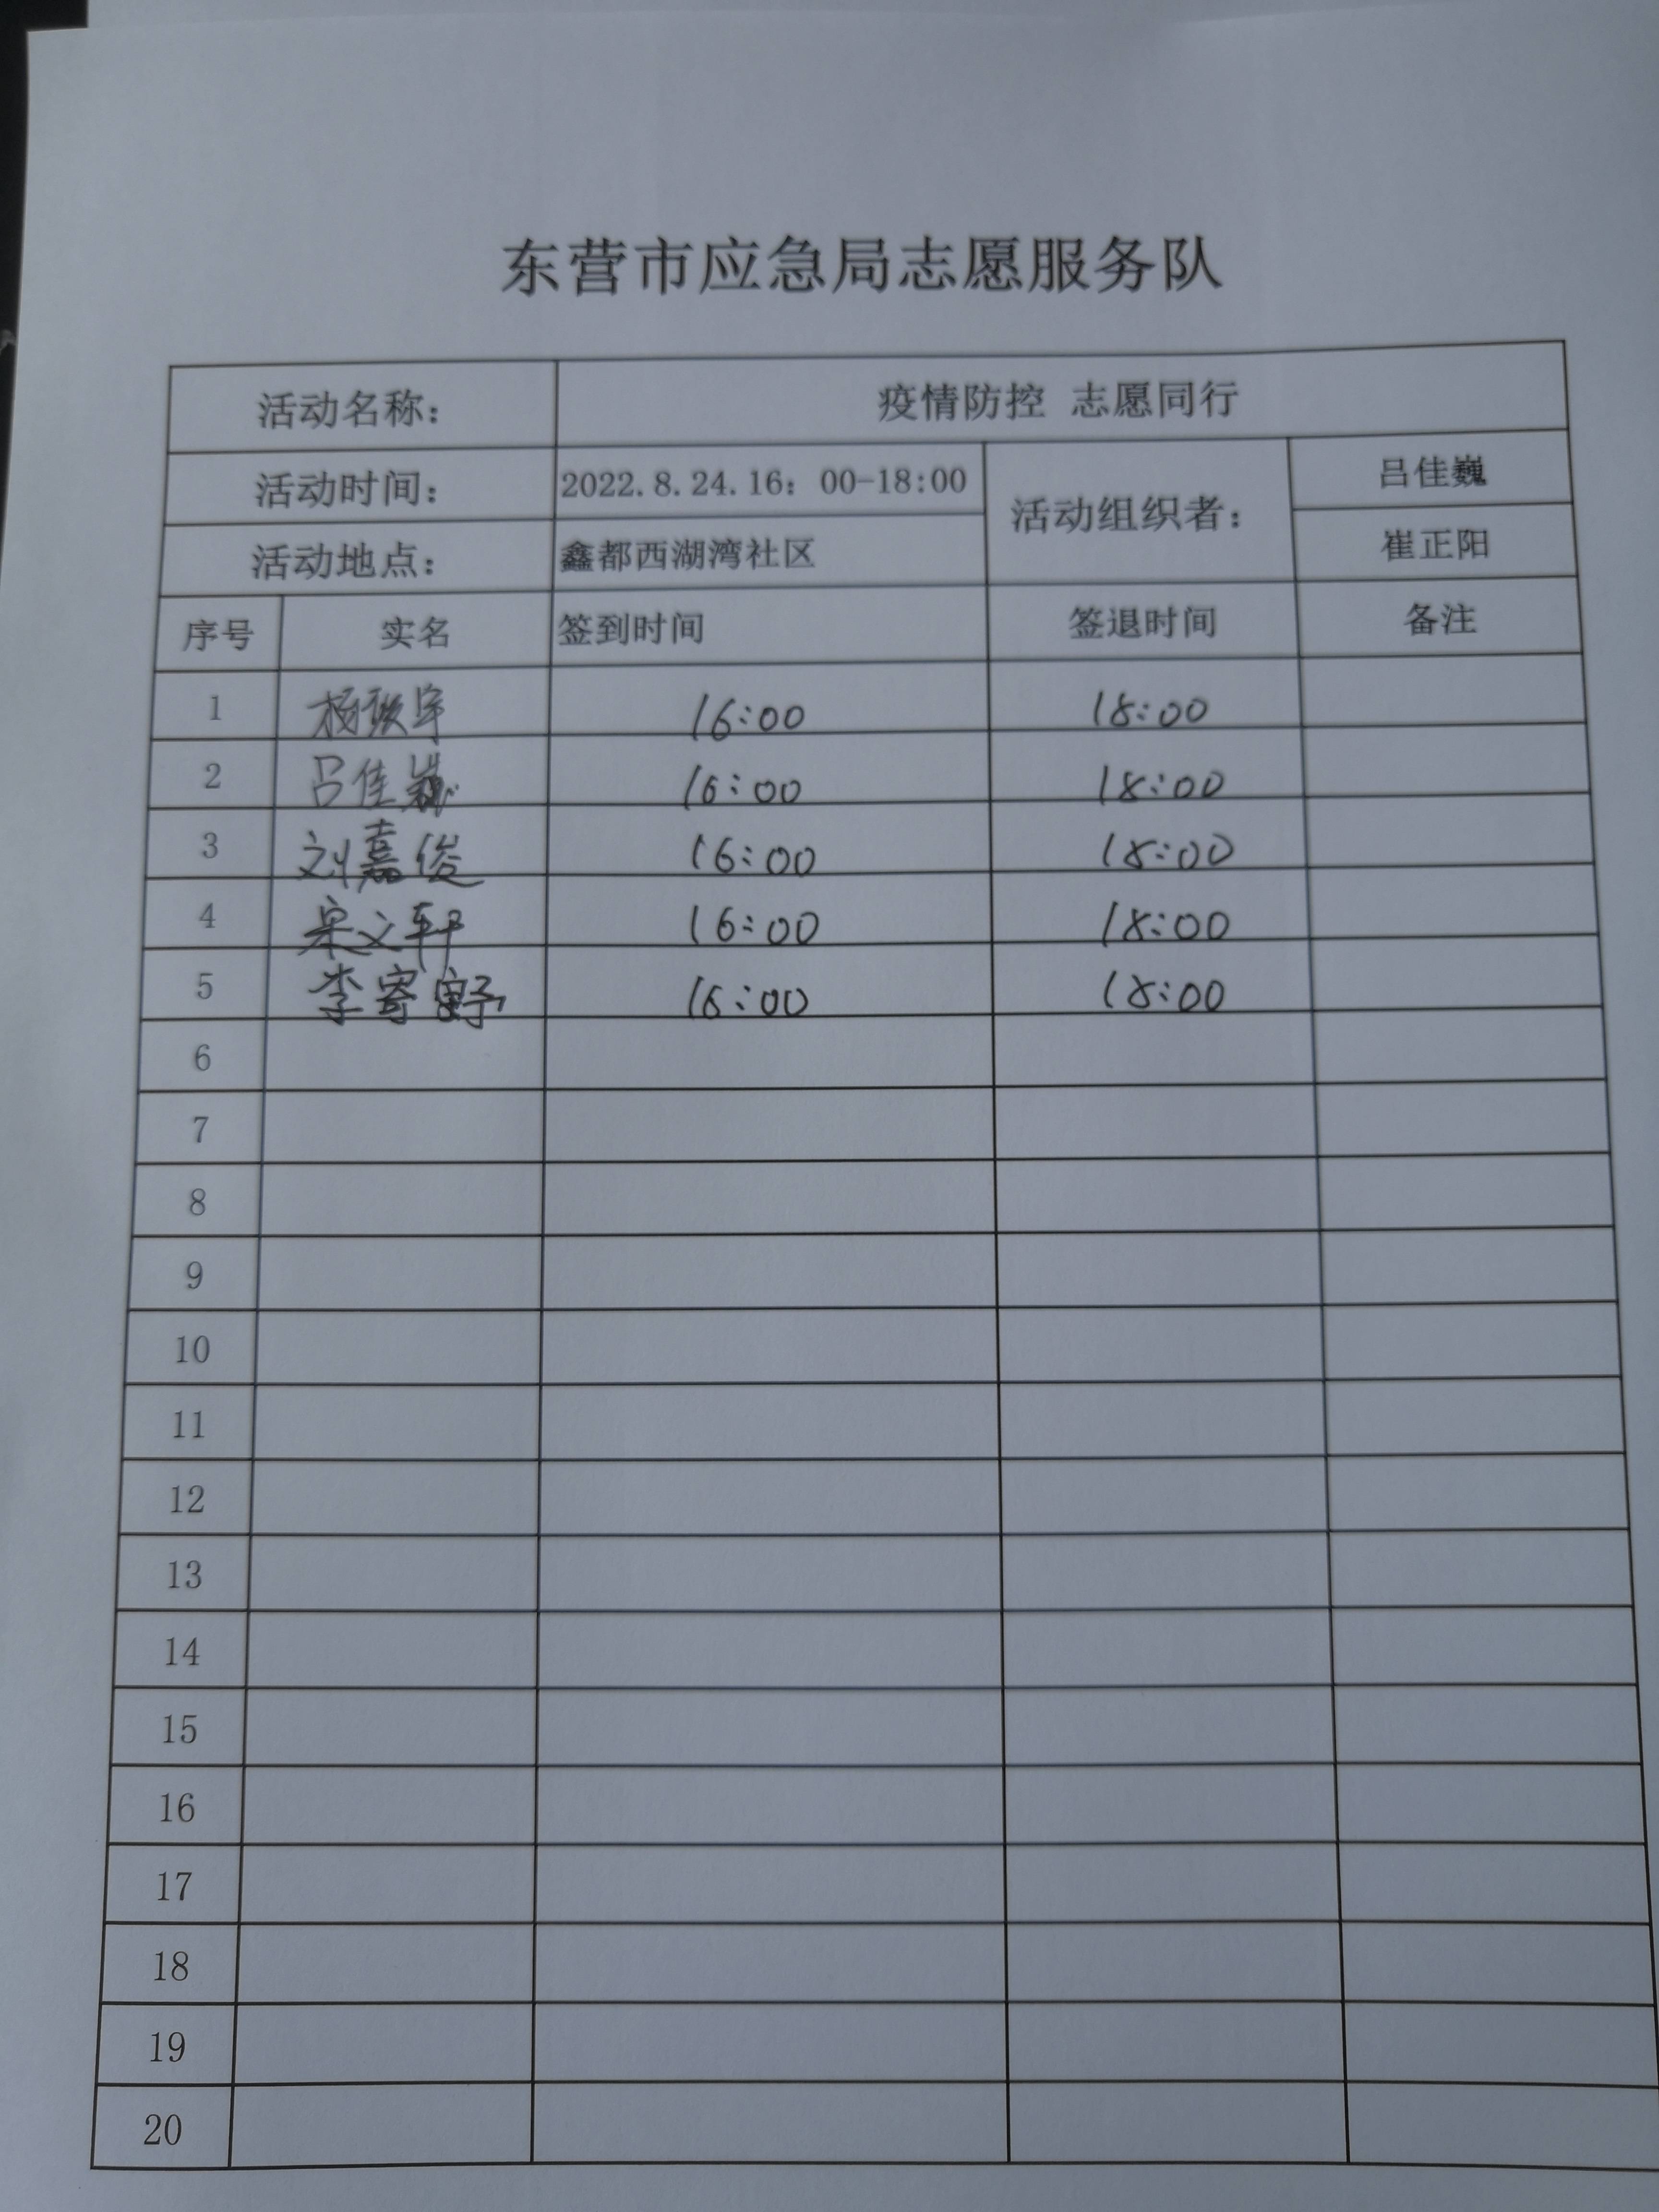 东营市应急局志愿服务队
活动名称： 疫情防控 志愿同行
活动时间： 2022.8.24.16：00-18:00 活动组织者： 吕佳巍
活动地点： 鑫都西湖湾社区 崔正阳
序号 实名 签到时间 签退时间 备注
1 杨 宇 16:00 18:00
2 吕佳巍 16:00 18:00
3 刘嘉俊 16:00 18:00
4 宋文轩 16:00 18:00
5 李寄野 16:00 18:00
6
7
8
9
10
11
12
13
14
15
16
17
18
19
20